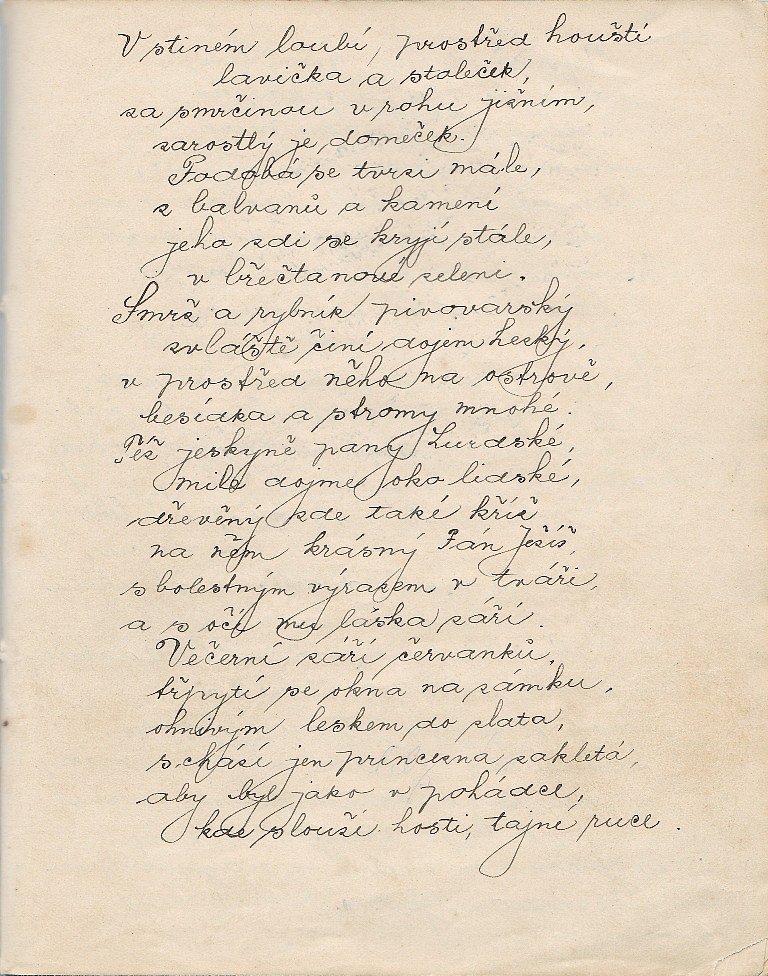 V stiném loubí, prostřed houští
lavička a stoleček,
za smrčinou v rohu jižním,
zarostlý je domeček.
Podobá se tvrzi mále,
z balvanů a kamení
jeho zdi se kryjí stále,
v břečtanové zeleni.
Smrž a rybník pivovarský
zvláště činí dojem hezký,
v prostřed něho na ostrově,
besídka a stromy mnohé.
Též jeskyně pany Lurdské,
mile dojme oko lidské,
dřevěný zde také kříž
na něm krásný Pán Ježíš,
s bolestným výrazem v tváři,
a s očí mu láska září.
Večerní září červanků,
třpytí se okna na zámku,
ohnivým leskem do zlata,
schází jen princezna zakletá,
aby byl jako v pohádce,
kde slouží hosti, tajné ruce.